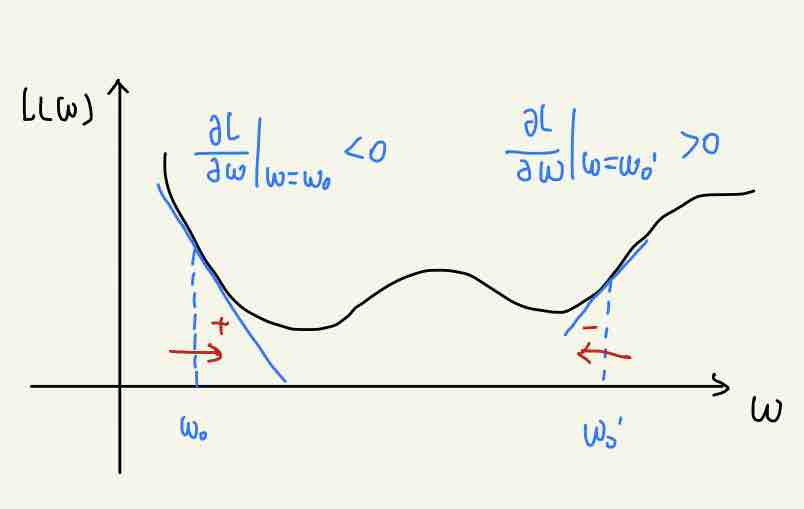 L(w)
∂L/∂w|w=w₀ <0
∂L/∂w|w=w₀' >0
+
-
w₀
w₀'
w